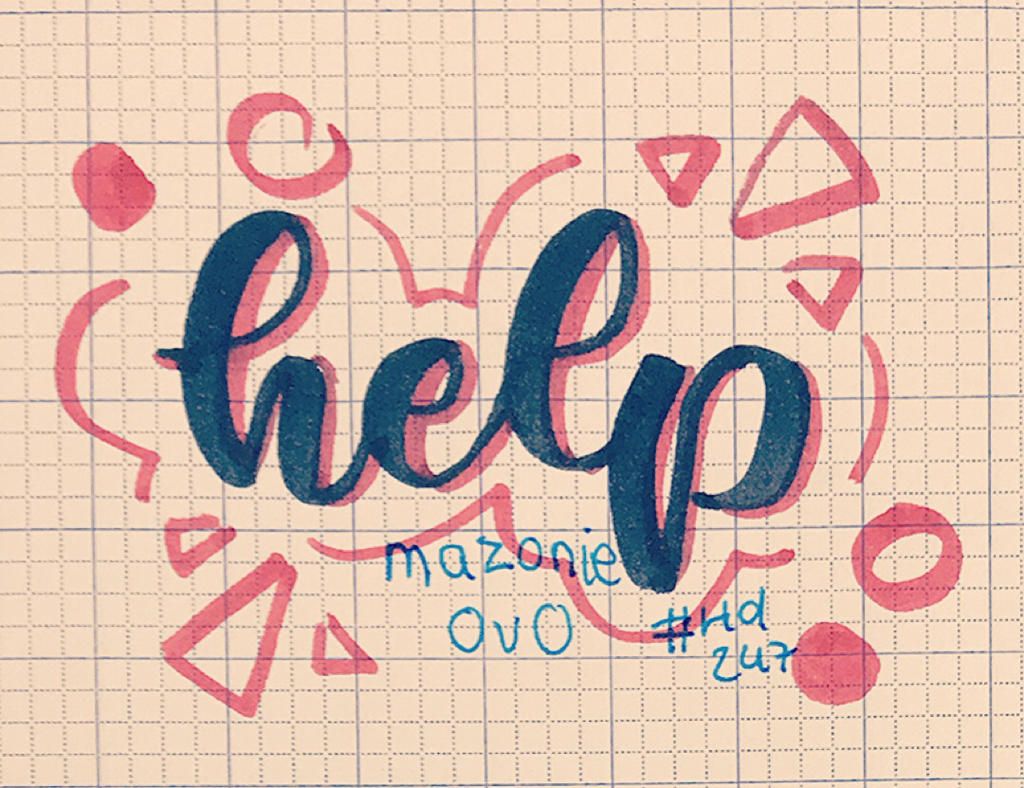 help
mazonie
OvO
#Hd
247